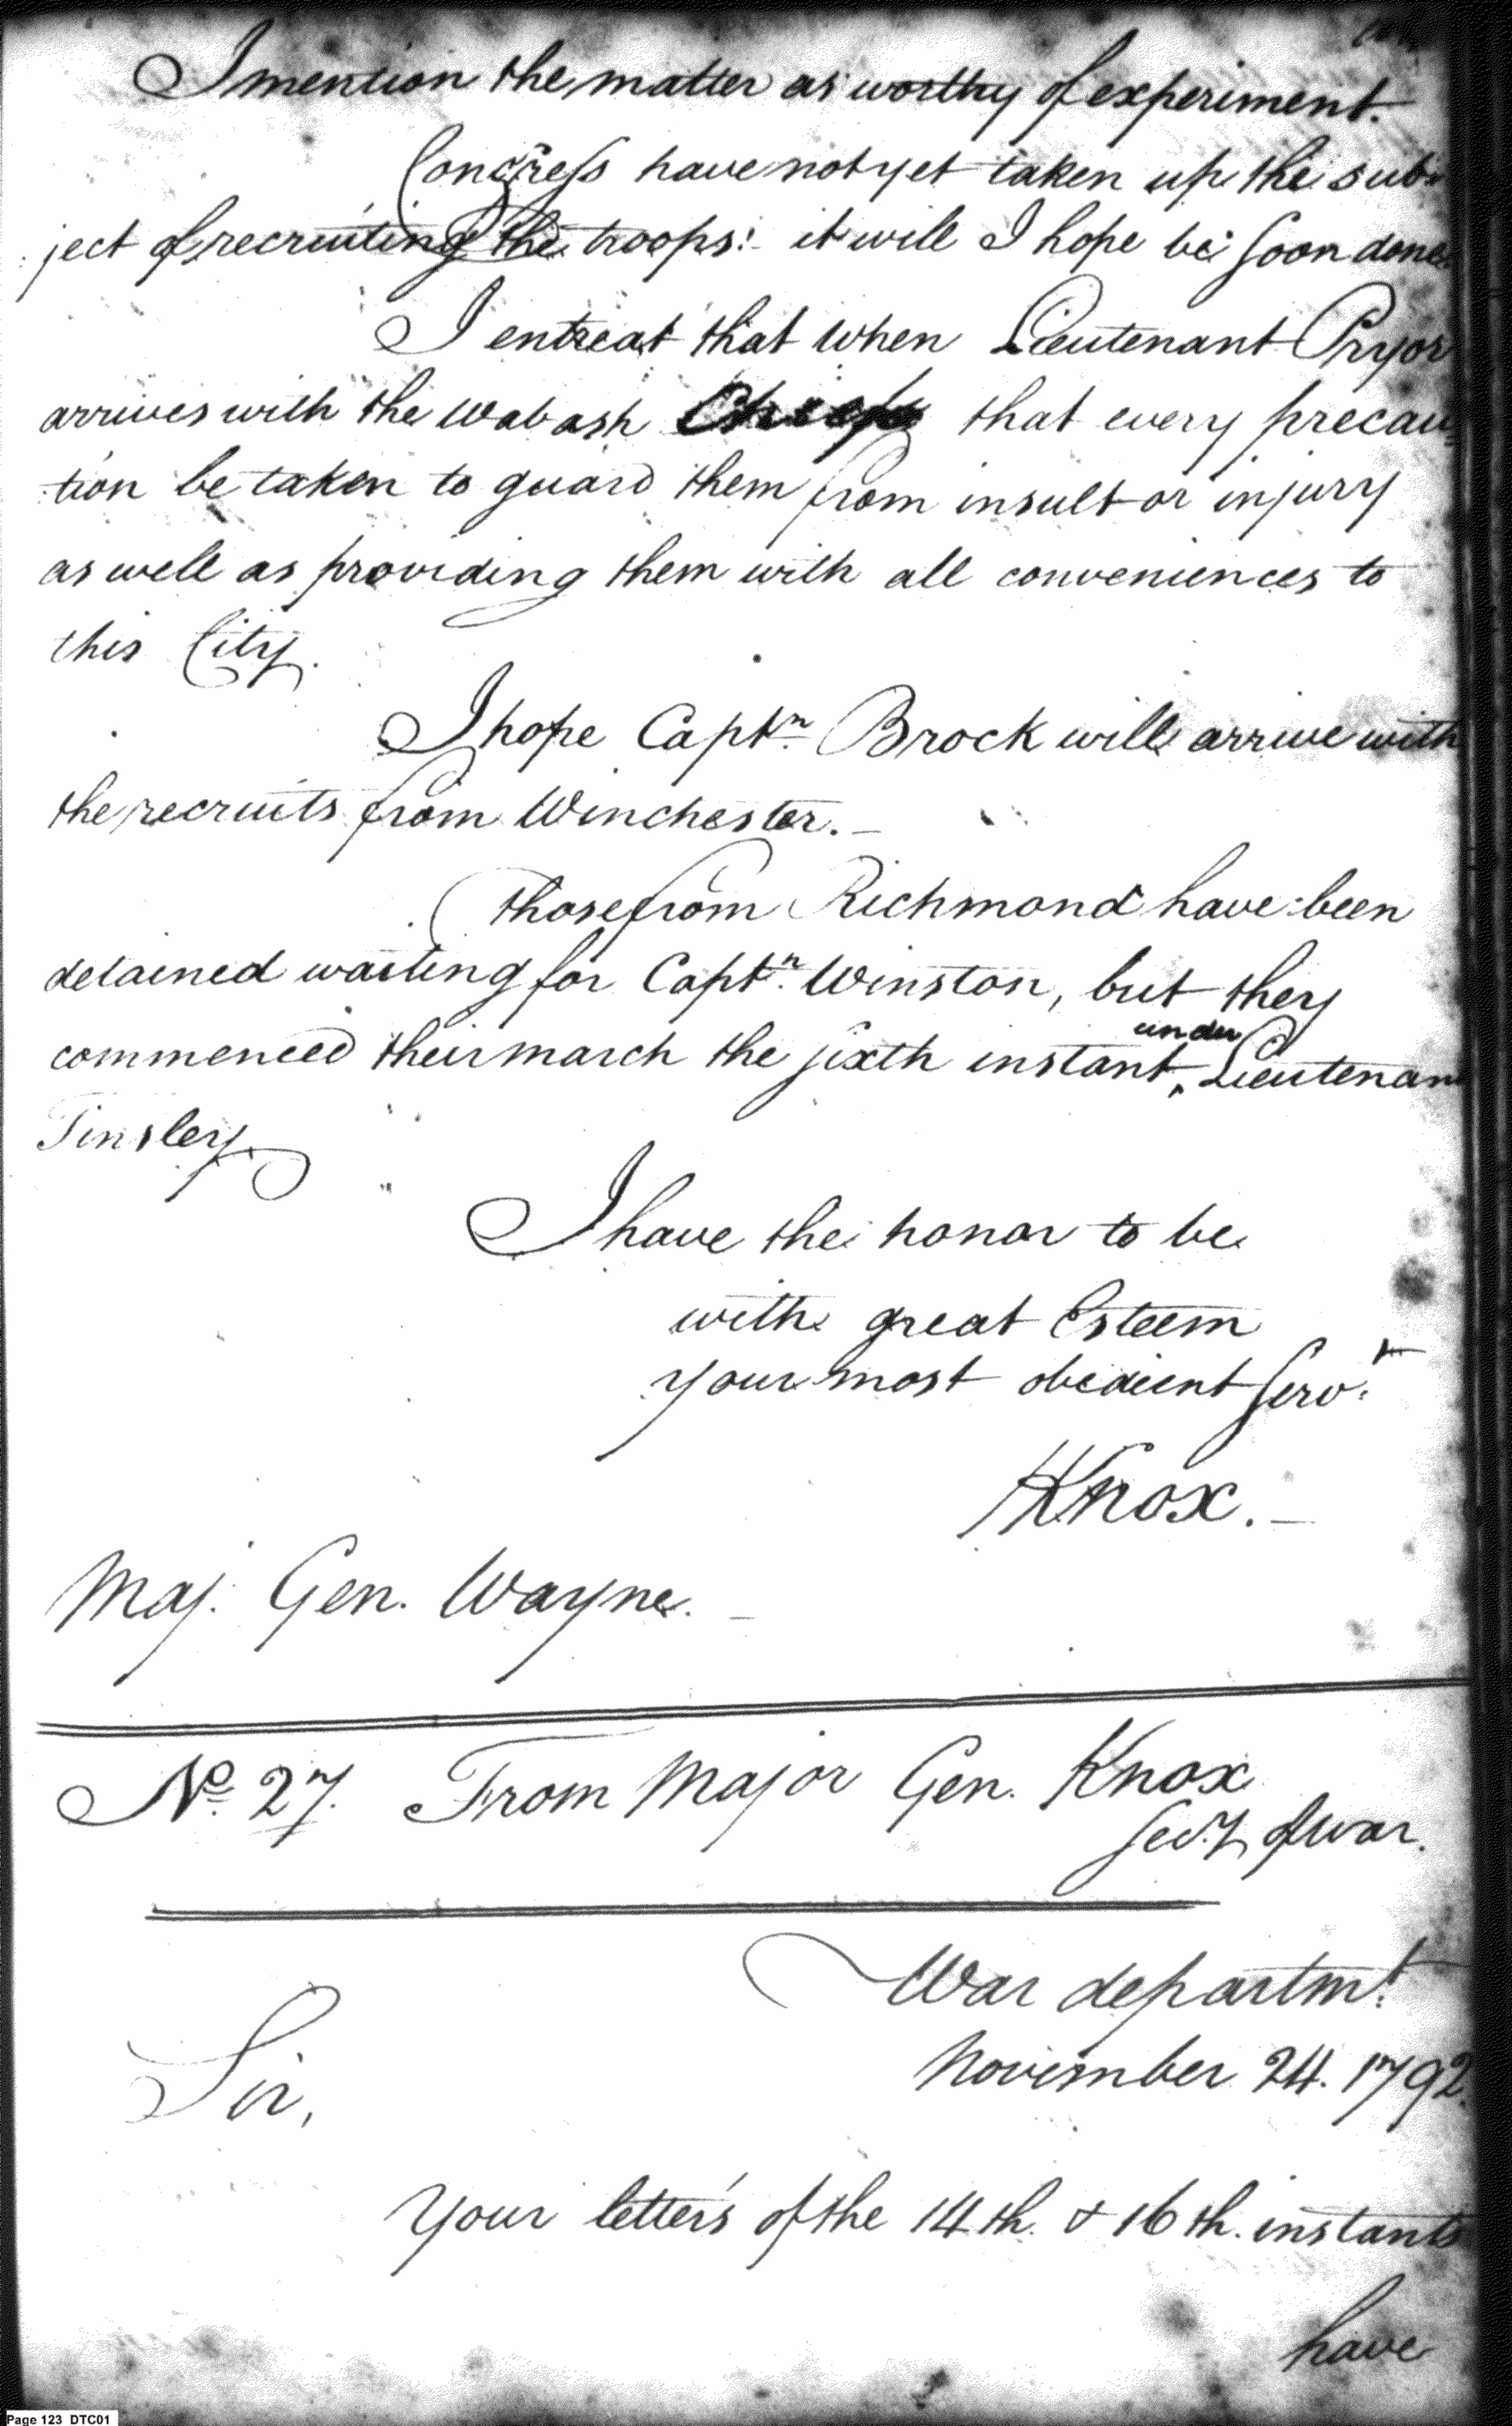 I mention the matter as worthy of experiment.
Congress have not yet taken up the sub-
ject of recruiting the troops: it will I hope be soon done.
I entreat that when Lieutenant Pryor
arrives with the Wabash Chiefs that every precau-
tion be taken to guard them from insult or injury
as well as providing them with all conveniences to
this City.
I hope Captn. Brock will arrive with
the recruits from Winchester. –
Those from Richmond have been
detained waiting for Captn. Winston, but they
under
commenced their march the sixth instant, ‸ Lieutenant
Tinsley
I have the honor to be
with great Esteem
your most obedient Servt.
HKnox. –
Maj. Gen. Wayne. –
No. 27. From Major Gen. Knox
Secy. of War.
War departmt.
November 24. 1792.
Sir,
Your letters of the 14th. & 16th. instants
have
Page 123 DTC01